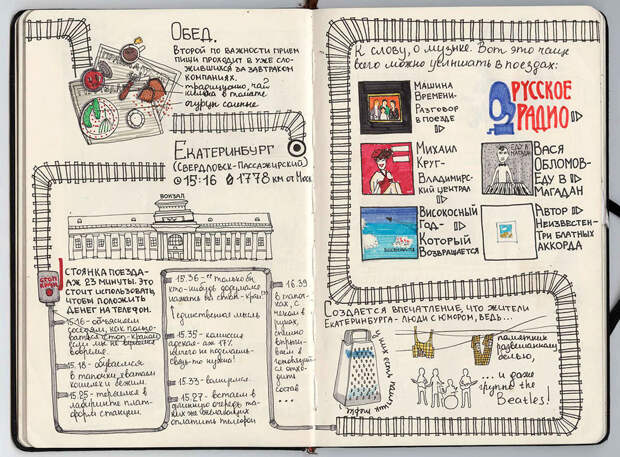 Обед.
Второй по важности прием
пищи проходит в уже сло-
жившихся за завтраком
компаниях.
традиционно, чай
килька в томате
огурцы
Екатеринбург
(Свердловск-Пассажирский)
15:16 1778 км от Моск
ВОКЗАЛ
СТОП
КРАН
Стоянка поезда-
аж 23 минуты. Это
стоит использовать,
чтобы положить
денег на телефон.
15.16 - объясняем
соседям, как поль-
зоваться стоп-краном
если мы не вернемся
вовремя.
15.18 - обувался
в тапочки, хватаем
кошелек и бежим.
15.25 - терялись в
лабиринте плат-
форм станции.
15.36 - "только бы
кто-нибудь додумался
нажать на стоп-кран!"
единственная мысль
15.35 - комиссия
адская - аж 17%
ничего не подешев-
15.33 -
15.27 - встаем в
длинную очередь та-
ких же желающих
оплатить телефон
16.39
в тапоч-
ках, с
чеком в
руках,
состав
К слову, о музыке. Вот это чаще
всего можно услышать в поездах:
Машина
Времени-
Разговор
в поезде
РУССКОЕ
РАДИО
Михаил
Круг-
Владимирс-
кий централ
ЕДУ В
МАГАДАН
Вася
Обломов-
Еду в
Магадан
Високосный
Год-
Который
Возвращается
Автор
Неизвестен-
Три блатных
аккорда
Создается впечатление, что жители
Екатеринбурга - люди с юмором, ведь...
у них есть памятник терке
памятник
развешанному
белью,
и даже
группе the
Beatles!